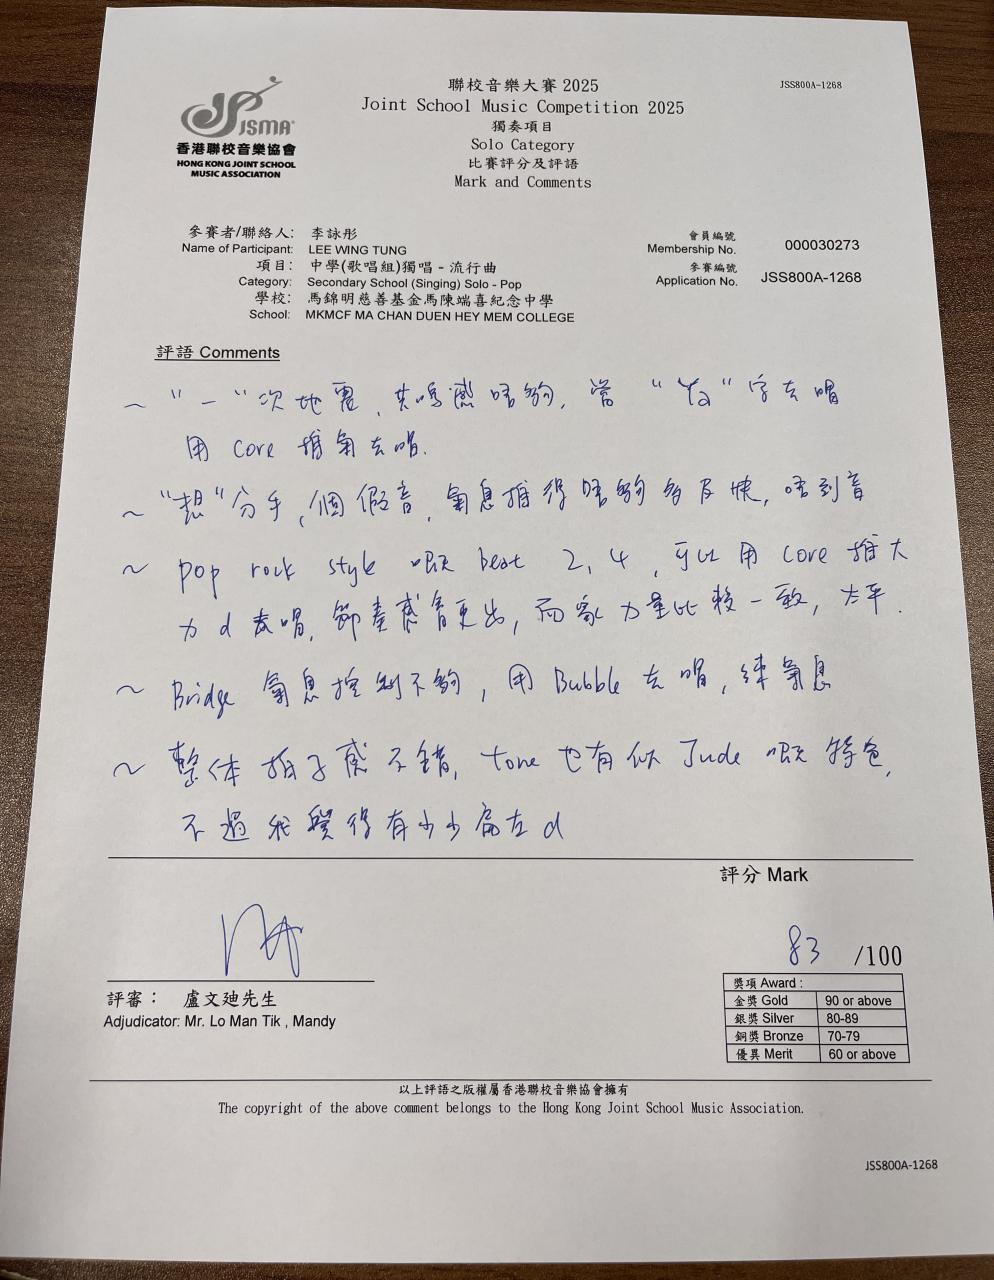 JSMA
香港聯校音樂協會
HONG KONG JOINT SCHOOL
MUSIC ASSOCIATION
聯校音樂大賽 2025
Joint School Music Competition 2025
獨奏項目
Solo Category
比賽評分及評語
Mark and Comments
JSS800A-1268
參賽者/聯絡人: 李詠彤
Name of Participant: LEE WING TUNG
項目: 中學(歌唱組)獨唱 - 流行曲
Category: Secondary School (Singing) Solo - Pop
學校: 馬錦明慈善基金馬陳端喜紀念中學
School: MKMCF MA CHAN DUEN HEY MEM COLLEGE
會員編號
Membership No. 000030273
參賽編號
Application No. JSS800A-1268
評語 Comments
~ "一"次地震, 共鳴感唔夠, 當 "Ya" 字去唱
用 core 推氣去唱.
~ "想"分手, 個假音, 氣息推得唔夠多及快, 唔到音
~ pop rock style 嘅 beat 2, 4, 可以用 core 推大
力 d 去唱, 節奏感會更出, 而家力量比較一致, 太平.
~ Bridge 氣息控制不夠, 用 Bubble 去唱, 練氣息
~ 整体拍子感不錯, tone 也有似 Jude 嘅特色,
不過我覺得有少少扁左 d
評分 Mark
83 /100
評審: 盧文廸先生
Adjudicator: Mr. Lo Man Tik , Mandy
獎項 Award :
金獎 Gold 90 or above
銀獎 Silver 80-89
銅獎 Bronze 70-79
優異 Merit 60 or above
以上評語之版權屬香港聯校音樂協會擁有
The copyright of the above comment belongs to the Hong Kong Joint School Music Association.
JSS800A-1268